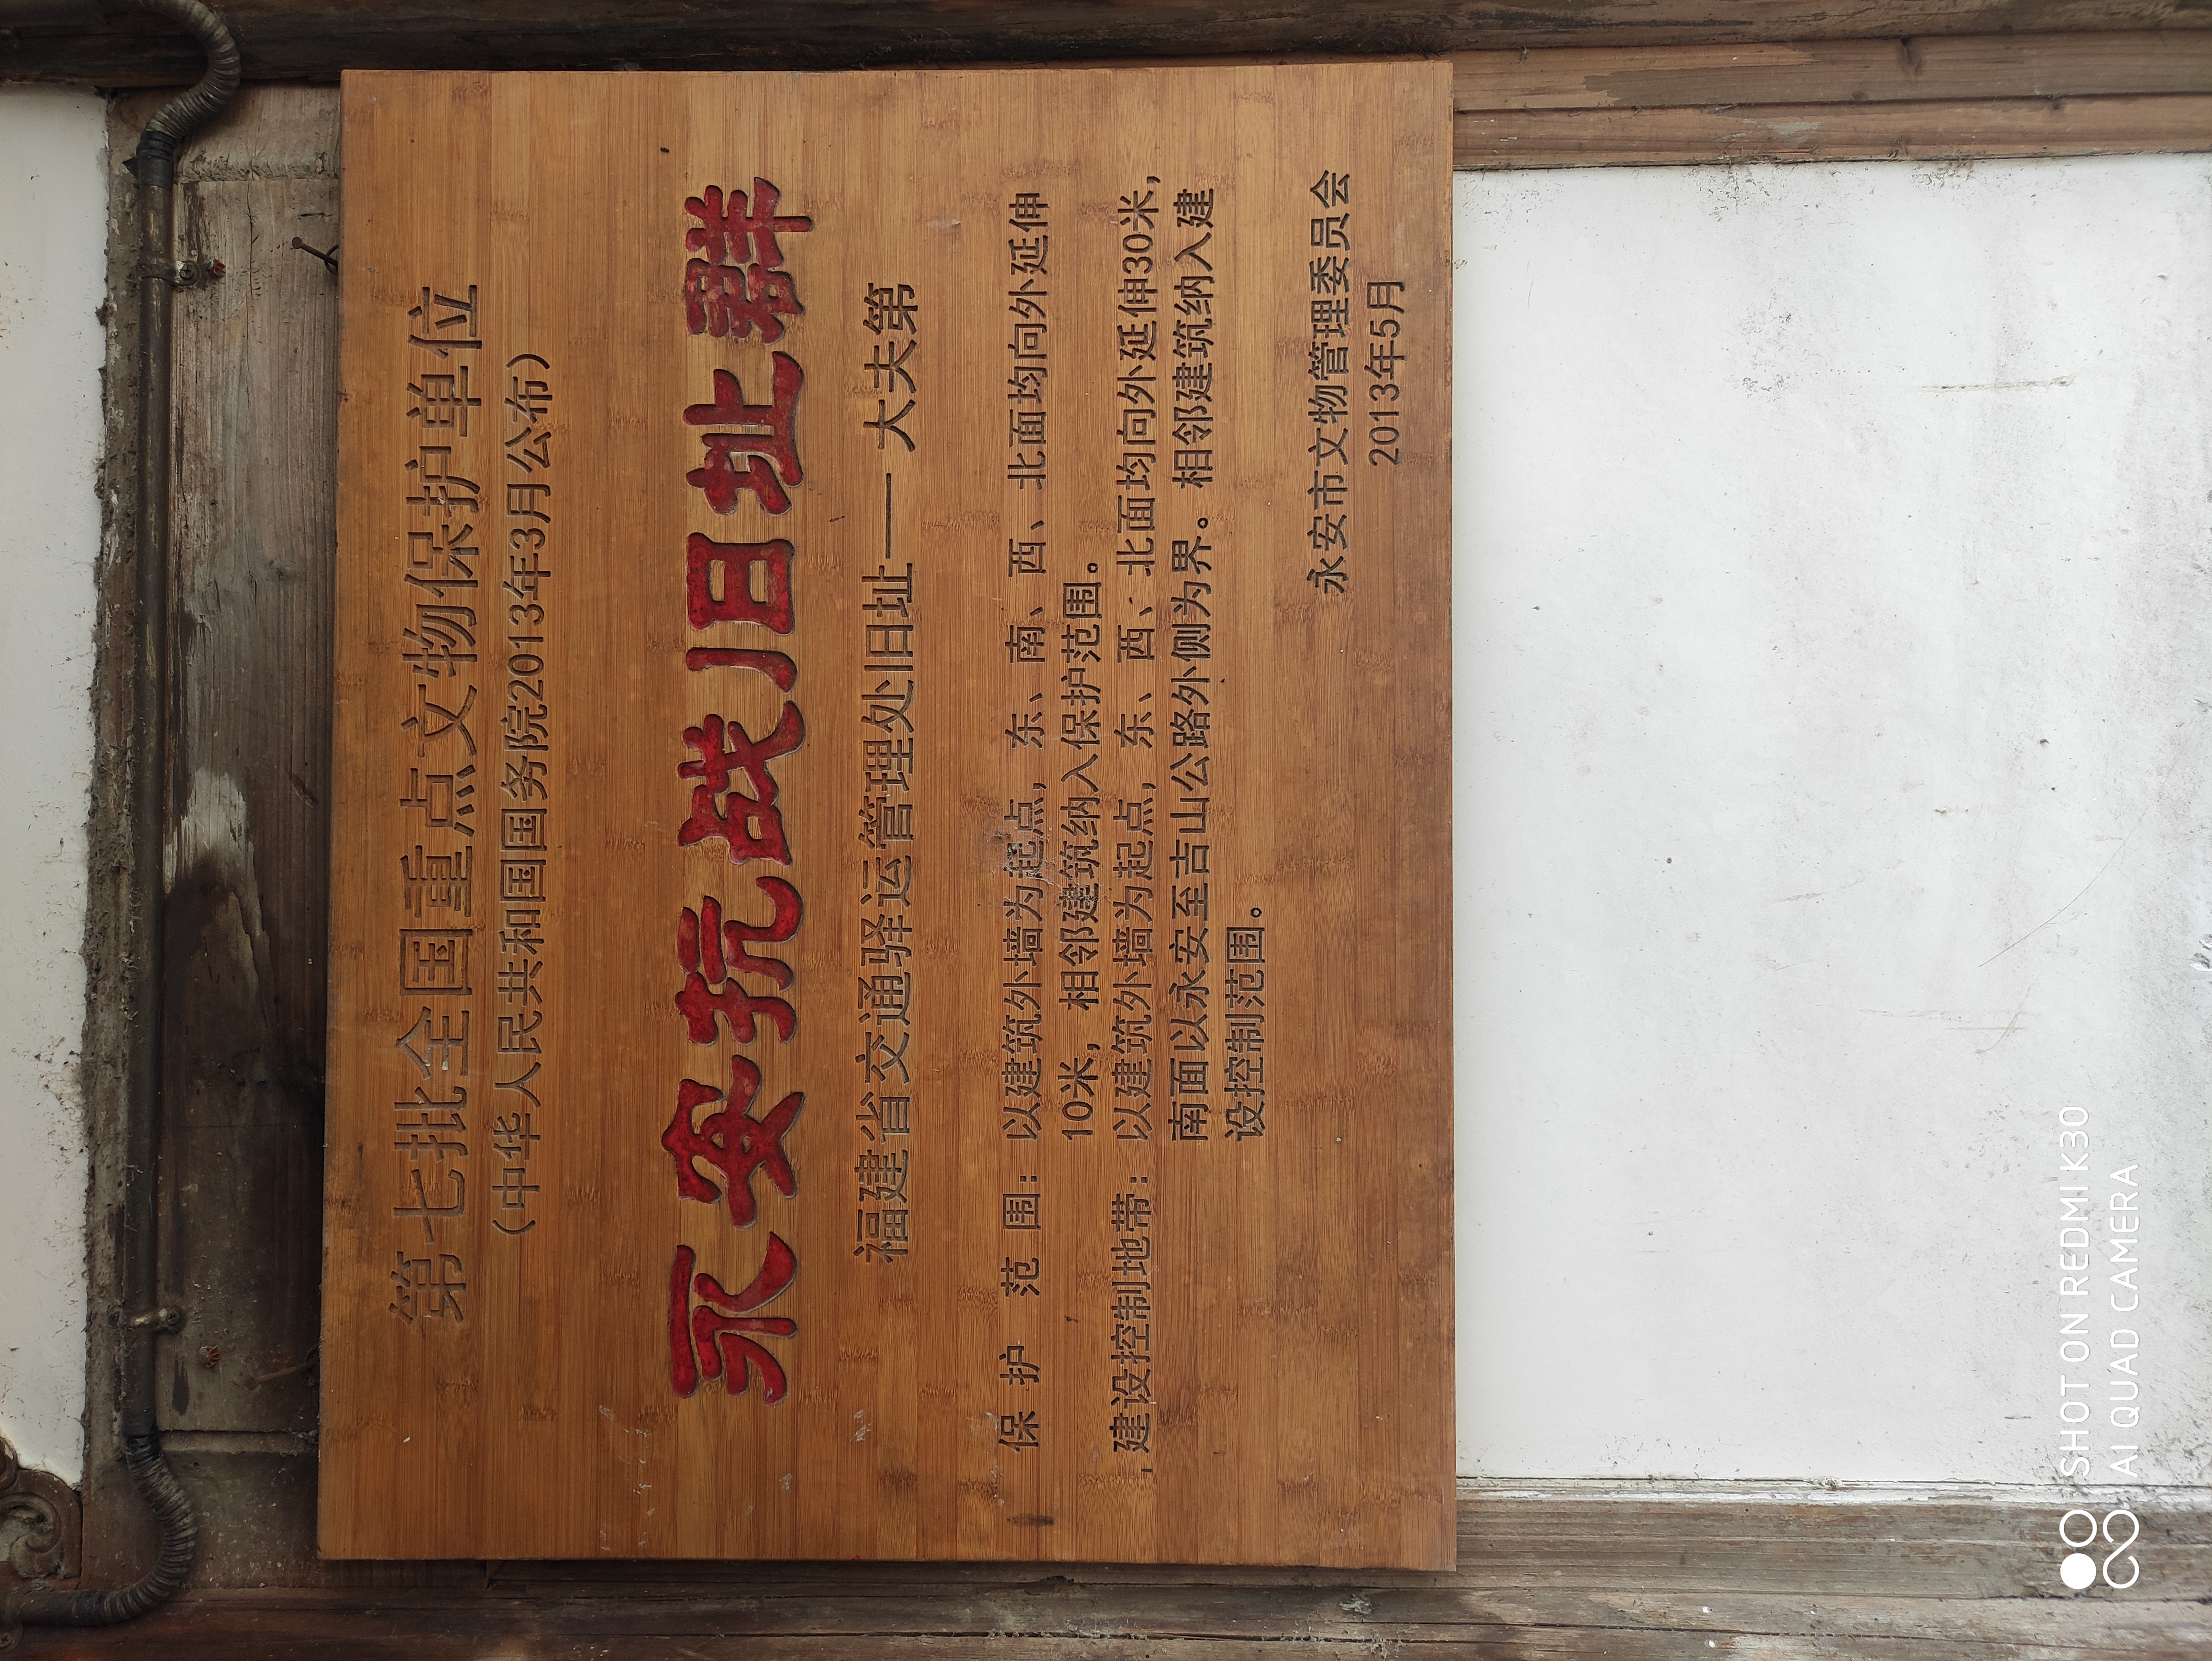 第七批全国重点文物保护单位
（中华人民共和国国务院2013年3月公布）
永安抗战旧址群
福建省交通驿运管理处旧址——大夫第
保护范围：以建筑外墙为起点，东、南、西、北面均向外延伸
10米，相邻建筑纳入保护范围。
建设控制地带：以建筑外墙为起点，东、西、北面均向外延伸30米，
南面以永安至吉山公路外侧为界。相邻建筑纳入建
设控制范围。
永安市文物管理委员会
2013年5月
SHOT ON REDMI K30
AI QUAD CAMERA